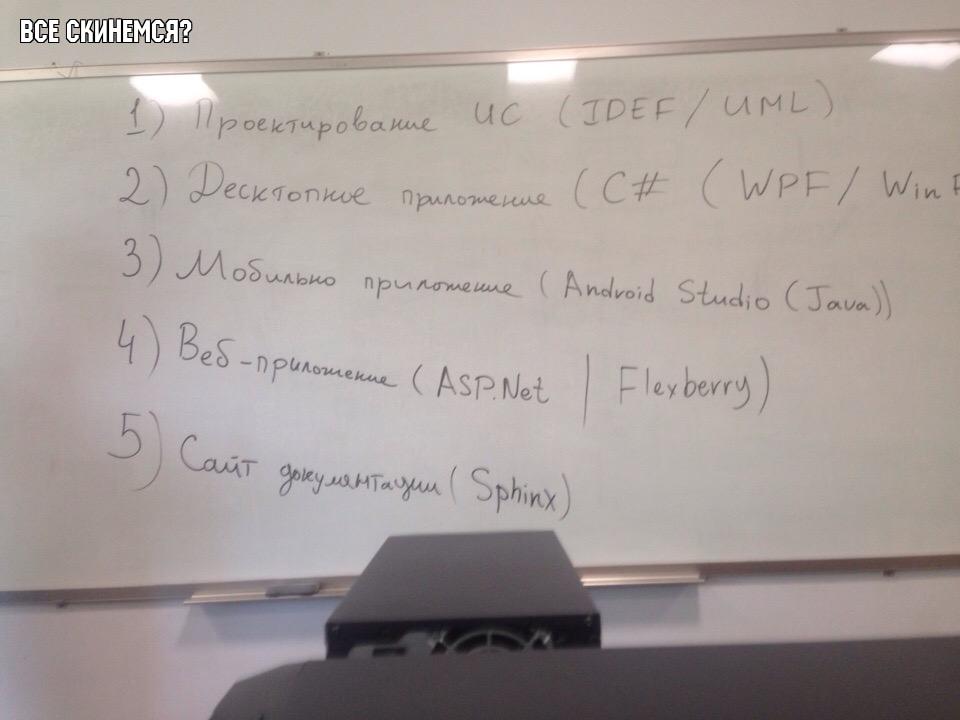 ВСЕ СКИНЕМСЯ?
1) Проектирование ИС (IDEF/UML)
2) Десктопное приложение (C# (WPF/ Win F
3) Мобильно приложение (Android Studio (Java))
4) Веб-приложение (ASP.Net | Flexberry)
5) Сайт документации (Sphinx)